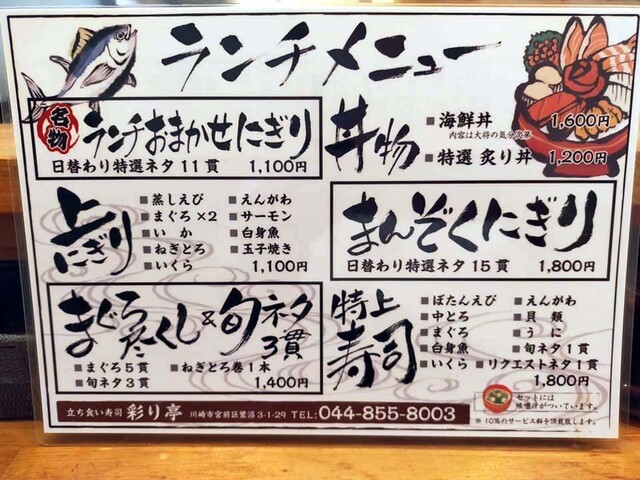 ランチメニュー
名物
ランチおまかせにぎり
日替わり特選ネタ 11貫 1,100円
丼物
■ 海鮮丼 1,600円
内容は大将の気分次第
■ 特選 炙り丼 1,200円
上にぎり
■ 蒸しえび ■ えんがわ
■ まぐろ×2 ■ サーモン
■ いか ■ 白身魚
■ ねぎとろ ■ 玉子焼き
■ いくら 1,100円
まんぞくにぎり
日替わり特選ネタ 15貫 1,800円
まぐろづくし&旬ネタ3貫
■ まぐろ5貫 ■ ねぎとろ巻1本
■ 旬ネタ3貫 1,400円
特上寿司
■ ぼたんえび ■ えんがわ
■ 中とろ ■ 貝類
■ まぐろ ■ うに
■ 白身魚 ■ 旬ネタ1貫
■ いくら ■ リクエストネタ1貫
1,800円
セットには
味噌汁がついています。
※10%のサービス料を頂戴致します。
立ち食い寿司 彩り亭 川崎市宮前区鷺沼3-1-29 TEL:044-855-8003